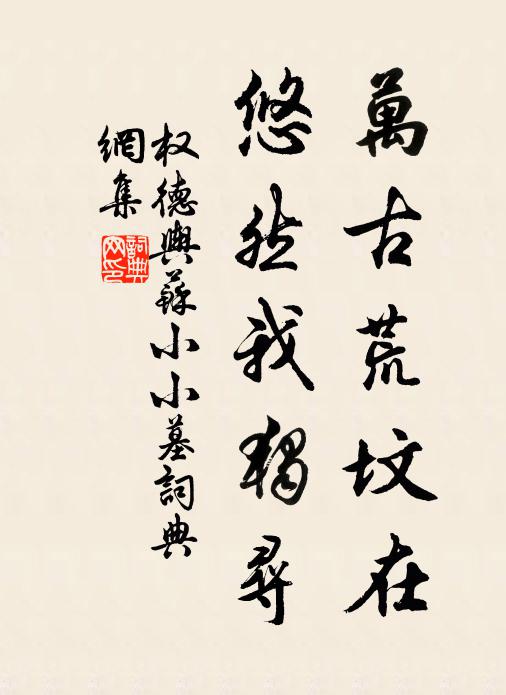 萬古荒坟在
悠然我獨尋
权德與蘇小小墓詞典
網集
詞典
网印